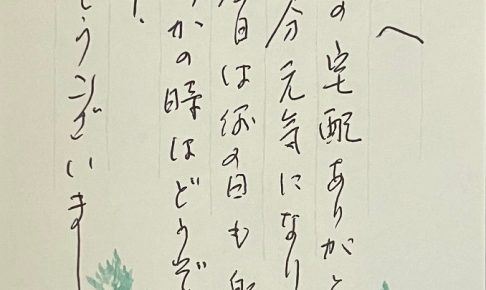 へ
の宅配ありがと
分元気になり
日はの日も
かの時はどうぞ
うございまし